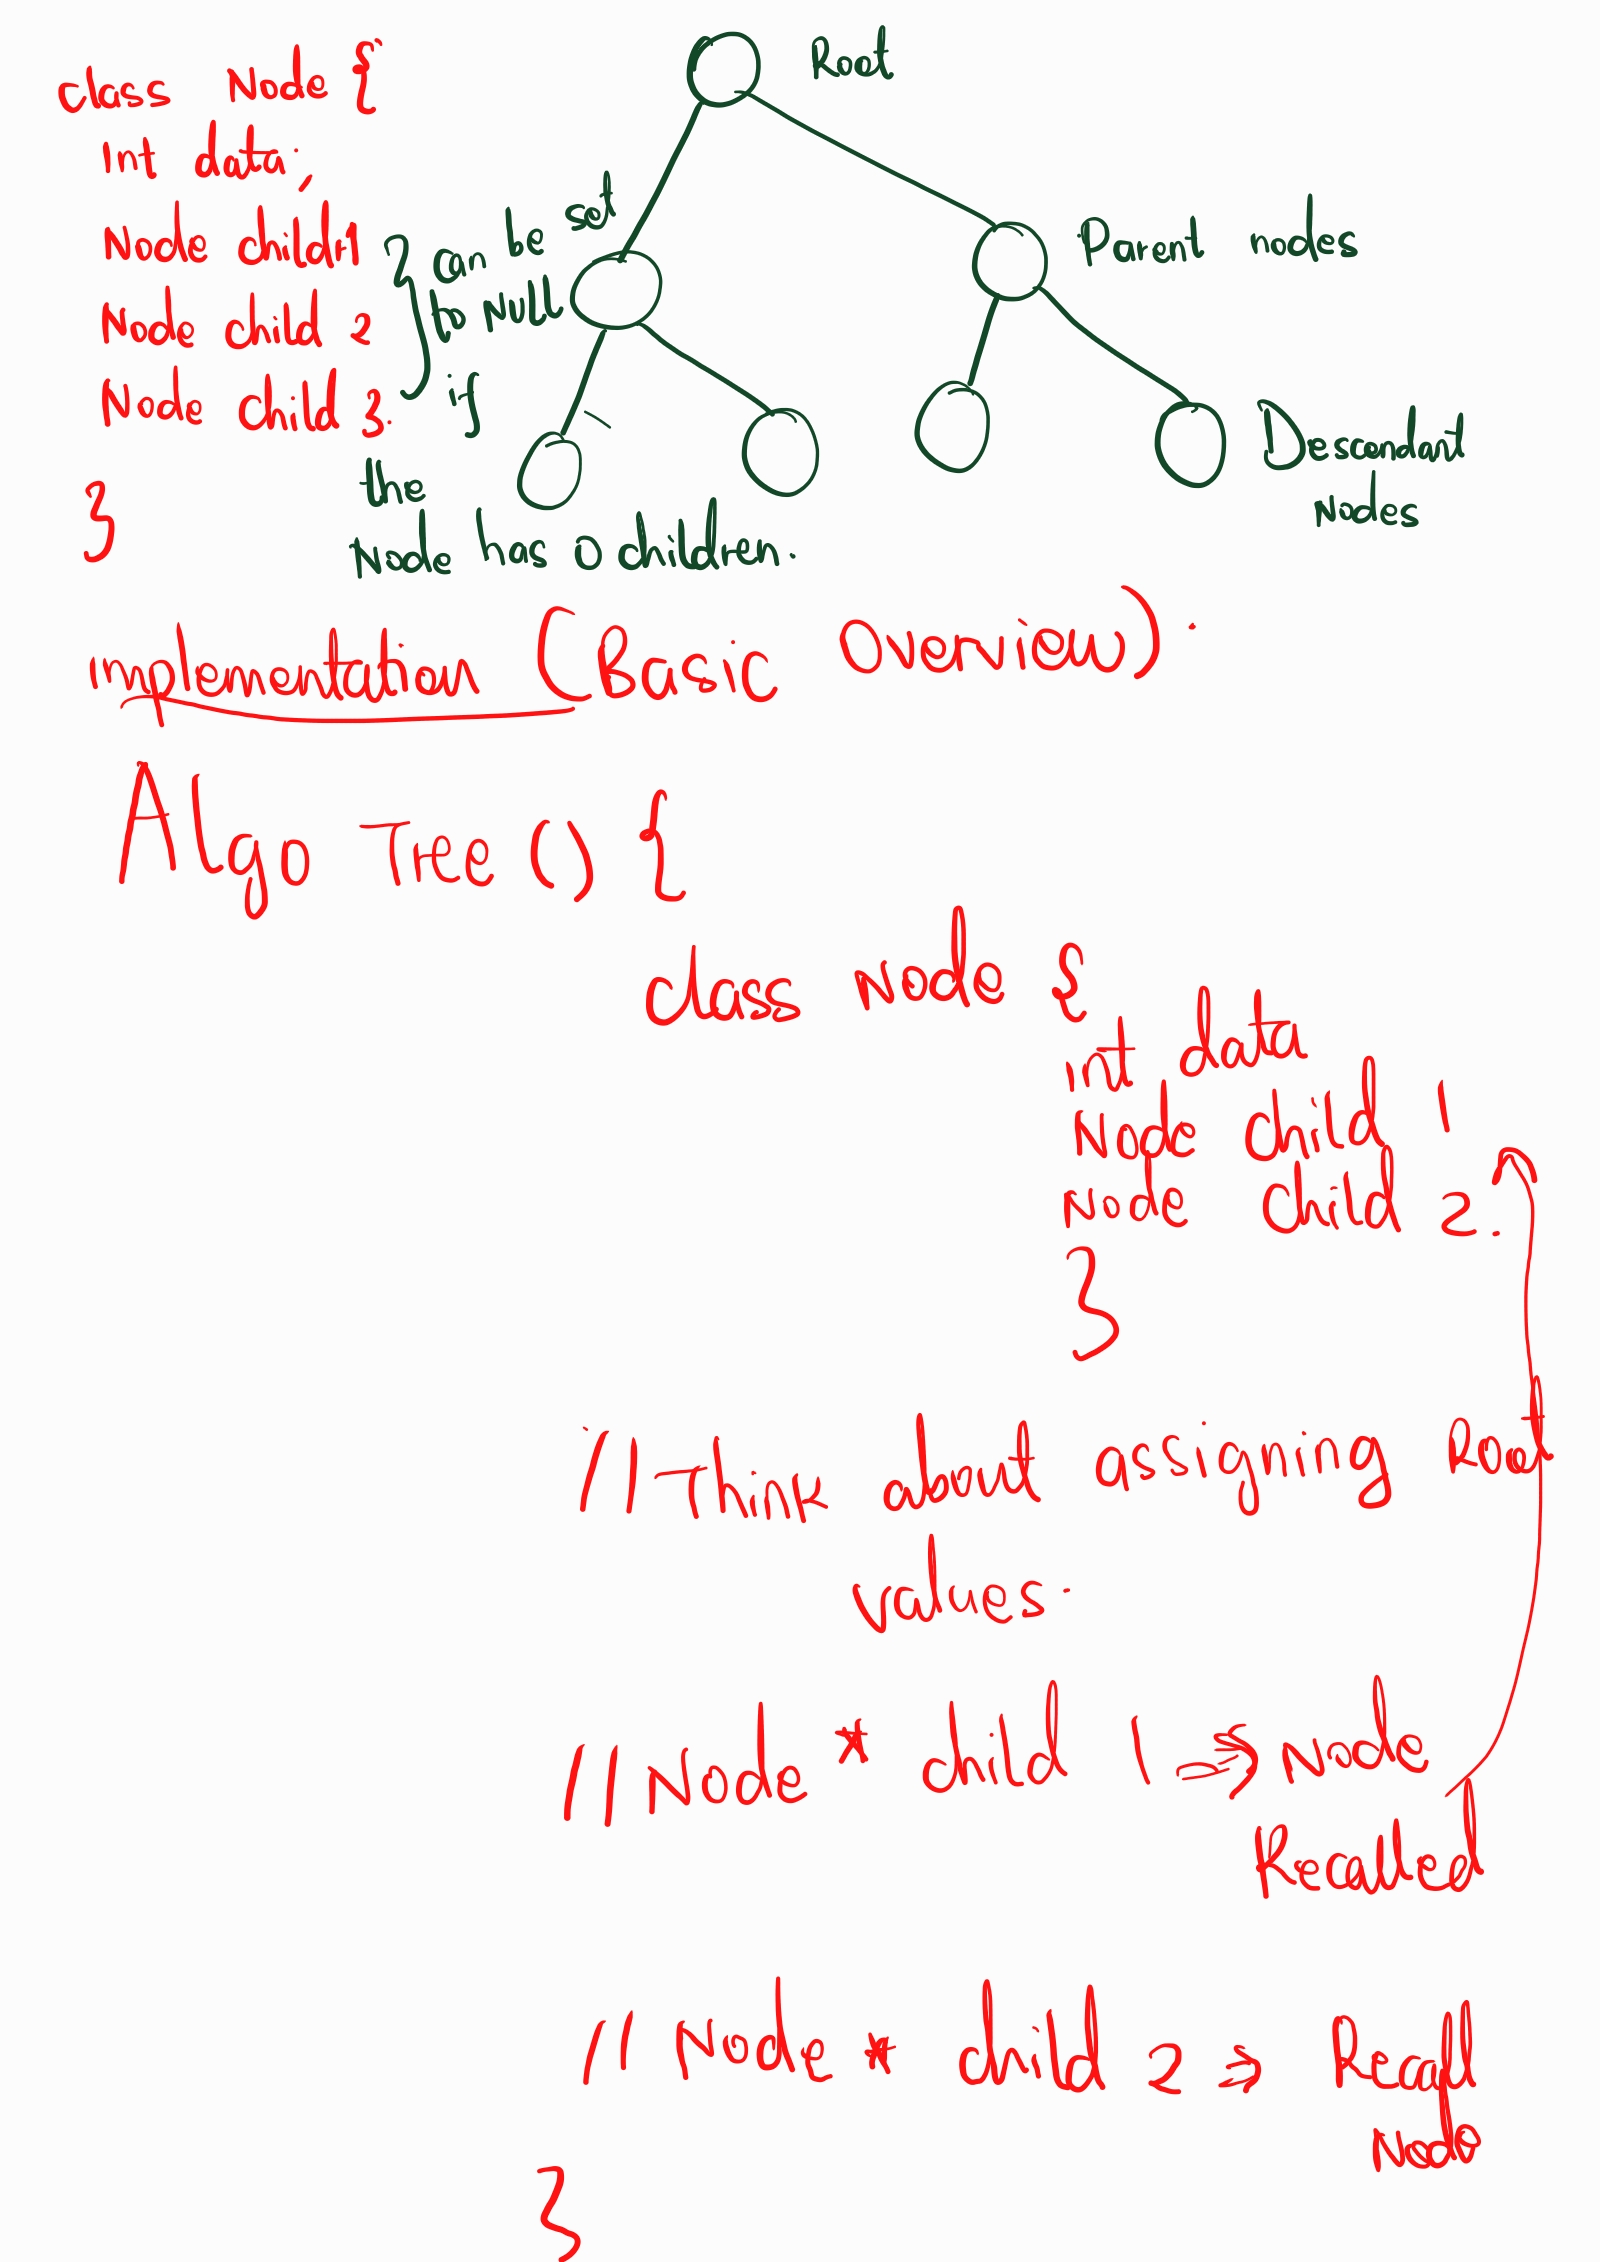 class Node {
Int data;
Node child1
Node child 2
Node child 3.
}
} can be set
to NULL
if
the
Node has 0 children.
Root
Parent nodes
Descendant
Nodes
implementation (Basic Overview).
Algo Tree () {
class Node {
int data
Node child 1
Node child 2.
}
// Think about assigning Root
values.
// Node * child 1 ⇒ Node
Recalled
// Node * child 2 ⇒ Recall
Node
}